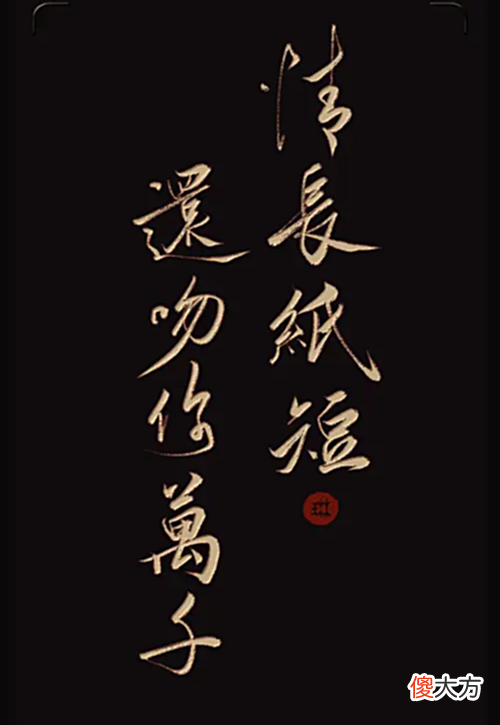 情長紙短
還吻你萬千
傻大方